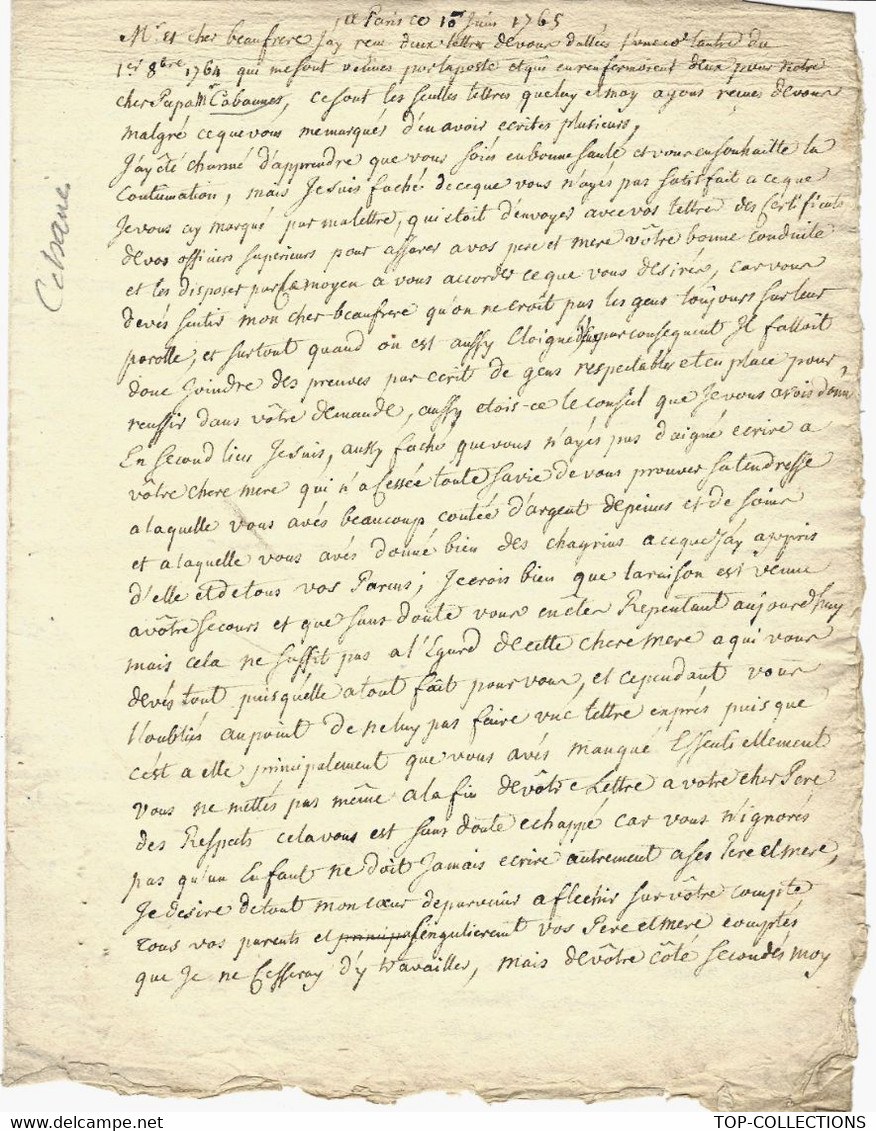 a Paris ce 10 Juin 1765
Mr. et cher beaufrere Jay reçu deux lettres de vous dattées l'une et l'autre du
1er 8bre 1764 qui me sont venües par la poste et qui en renfermoient deux pour notre
cher Papa Mr Cabannes, ce sont les seulles lettres que luy et moy ayons reçües de vous
malgré ce que vous me marqués d'en avoir ecrites plusieurs,
J'ay été charmé d'apprendre que vous soiés en bonne santé et vous en souhaitte la
Continuation, mais Je suis faché de ce que vous n'ayés pas satisfait a ce que
Je vous ay marqué par ma lettre, qui étoit d'envoyer avec vos lettre des Certificats
de vos officiers superieurs pour assurer a vos pere et mere vôtre bonne conduite
et les disposer par ce moyen a vous accorder ce que vous desirés, car vous
devés sentir mon cher beaufrere qu'on ne croît pas les gens toûjours sur leur
parolle, et surtout quand on est aussy Eloigné par consequent Il falloit
donc Joindre des preuves par ecrit de gens respectables et en place pour
reussir dans vôtre demande, aussy etois-ce le conseil que Je vous avois donné
En second lieu Je suis, aussy faché que vous n'ayés pas daigné ecrire a
vôtre chere mere qui n'a Cessée toute sa vie de vous prouver sa tendresse
a laquelle vous avés beaucoup coutée d'argent de peines et de soins
et a laquelle vous avés donné bien des chagrins a ce que J'ay appris
d'elle et de tous vos Parens; Je crois bien que la raison est venue
a vôtre secours et que sans doute vous en étes Repentant aujourd'huy
mais cela ne suffit pas a l'Egard de cette chere mere a qui vous
devés tout puisqu'elle a tout fait pour vous, et cependant vous
l'oubliés au point de ne luy pas faire une lettre exprés puis que
c'est a elle principalement que vous avés manqué Essentiellement
vous ne mettés pas même a la fin de vôtre Lettre a votre cher Pere
des Respects cela vous est sans doute echappé car vous n'ignorés
pas qu'un Enfant ne doit Jamais ecrire autrement a ses Pere et mere,
Je desire de tout mon cœur de parvenir a flechir sur vôtre compte
tous vos parents et singulierement vos Pere et mere comptés
que Je ne Cesseray d'y travailler, mais de vôtre côté secondés moy
Cabanes
TOP-COLLECTIONS
www.delcampe.net